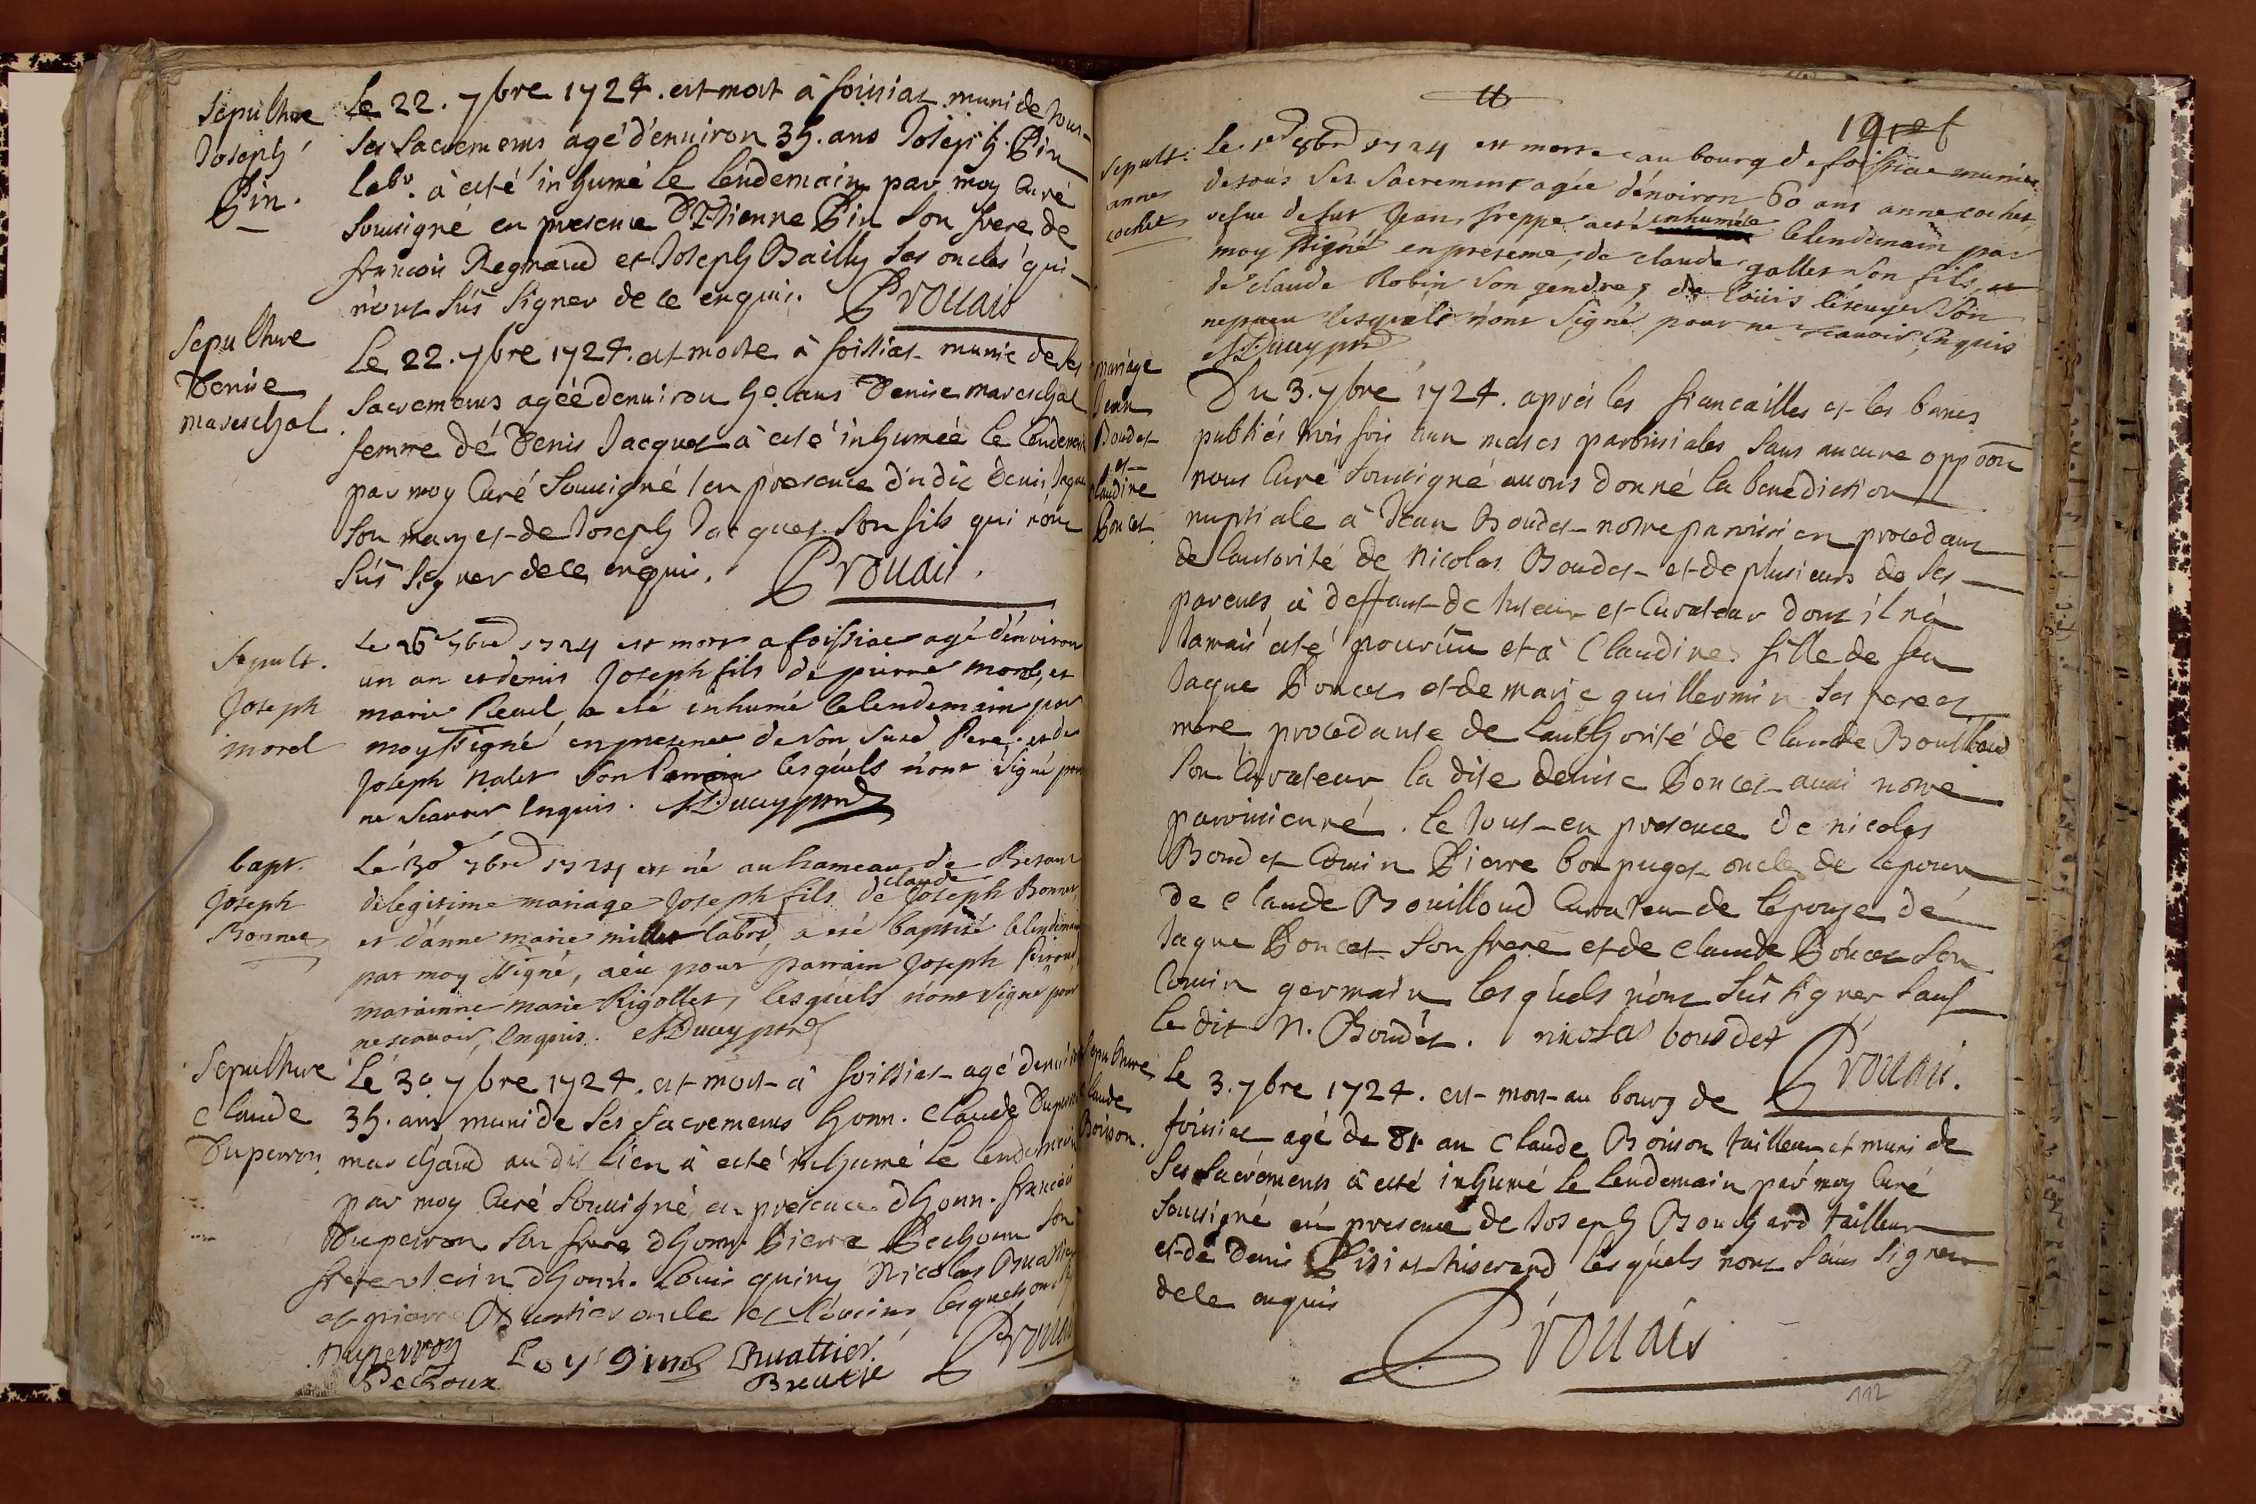 Sepulture
Joseph
Pin.
Le 22. 7bre 1724. est mort à foissiat muni de tous
ses sacremens agé d'environ 35. ans Joseph Pin
labr. à esté inhumé le lendemain par moy Curé
soussigné en presence d'Etienne Pin son frere de
francois Regnaud et Joseph Bailly ses oncles qui
n'ont sus signer de ce enquis. Prouais
Sepulture
Denise
mareschal
Le 22. 7bre 1724. est morte à foissiat munie de ses
sacremens agée denviron 50 ans Denise mareschal
femme dé Denis Jacquet à esté inhumée le lendemain
par moy Curé soussigné en presence dudit Denis Jaque
son mary et de Joseph Jacquet son fils qui n'ont
sus signer de ce enquis. Prouais.
Sepult.
Joseph
morel
Le 26 7bre 1724 est mort a foissiac agé d'environ
un an et demis Joseph fils de pierre morel, et
marie Reuil, a eté inhumé le lendemain par
moy ssigné en presence de son susd Pere, et de
Joseph nalet son Parrain lesquels n'ont signé pour
ne scavoir Enquis. Ducuyprd
bapt.
Joseph
Bonnet
Le 30e 7bre 1724 est né au hameau de
de legitime mariage Joseph fils de claude Joseph Bonnet,
et d'anne marie millet labrd, a eté baptisé le lendemain
par moy ssigné, a eu pour parrain Joseph
marainne marie Rigollet, lesquels n'ont signé pour
ne scavoir, Enquis. Ducuyprd
Sepulture
Claude
Duperron
Le 30 7bre 1724. est mort à foissiat agé denviron
35. ans muni de ses sacremens honn. Claude Duperron
marchand au dit lieu à esté inhumé le lendemain
par moy Curé soussigné en presence d'honn. francois
Duperron son frere d'honn. Pierre Pechoux son
frere uterin d'honn. Louis quiny Nicolas Buattier
et pierre oncle et cousins lesquels ont
Duperron Buattier Prouais
Pechoux
191
Sepult:
anne
cochet
Le 1er 8bre 1724 est morte au bourg de foissiac munie
de tous ses sacremens agée d'environ 60 ans anne cochet,
vefue de fut Jean freppe a eté inhumée le lendemain par
moy ssigné en presence, de claude gallet son fils, et
de claude Robin son gendre, de loüis lescuyer son
nepueu lesquels n'ont signé pour ne scavoir, Enquis
Ducuyprd
Mariage
Jean
Boudet
et
Claudine
Poncet
Du 3. 7bre 1724. aprés les fiancailles et les bancs
publiés trois fois aux messes paroissiales sans aucune oppoon
nous Curé soussigné auons donné la benédiction
nuptiale à Jean Boudet notre paroissien procedant
de lautorité de Nicolas Boudet et de plusieurs de ses
parents à deffaut de tuteur et Curateur dont il n'a
Jamais esté pourvu et à Claudine fille de feu
Jaque Poncet et de marie guillermin ses pere et
mere procedante de lauthorité de Claude Bouilloud
son Curateur la dite denise Poncet aussi notre
paroissienné. le tout en presence de nicolas
Boudet Cousin Pierre bonpuget oncle de lepoux
de Claude Bouilloud Curateur de lépouse dé
Jaque Poncet son frere et de Claude Poncet son
Cousin germain lesquels n'ont sus signer sauf
le dit N. Boudet. nicolas boudet
Prouais.
Sepulture
Claude
Boisson.
Le 3. 7bre 1724. est mort au bourg de
foissiat agé de 81 an Claude Boisson tailleur et muni de
ses sacréments à esté inhumé le lendemain par moy Curé
soussigné en presence de Joseph Bouchard tailleur
et de Denis Pisiat tisserand lesquels n'ont sceus signer
de ce enquis
Prouais
112